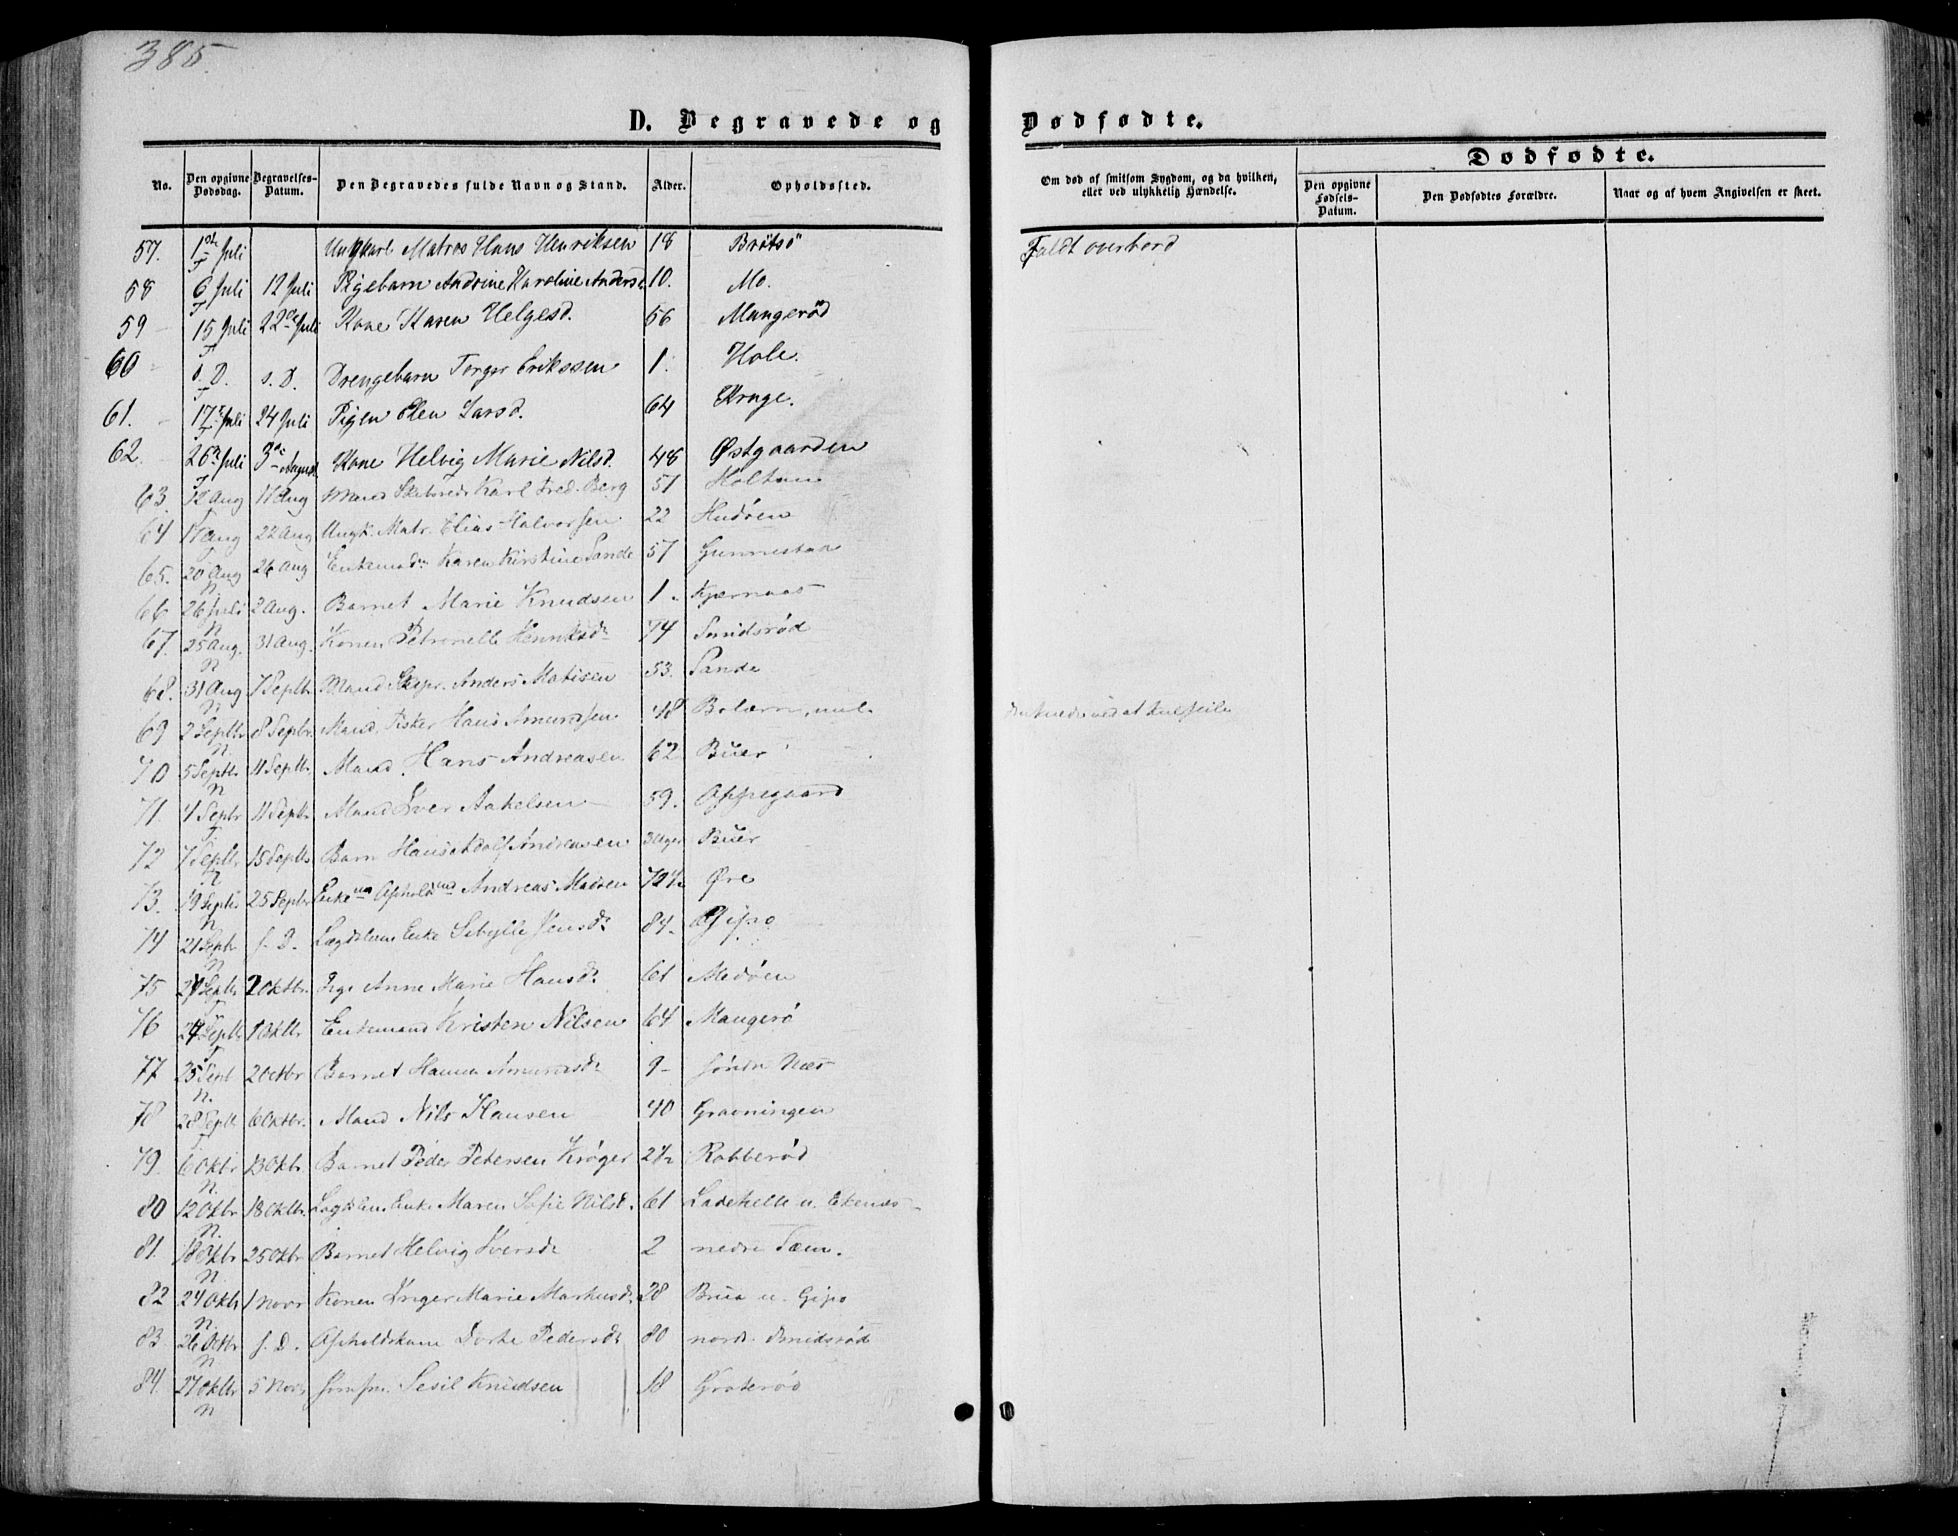 385
D. Begravede og Dødfødte.
Dødfødte.
No.
Den opgivne Dødsdag.
Begravelses-Datum.
Den Begravedes fulde Navn og Stand.
Alder.
Opholdssted.
Om død af smitsom Sygdom, og da hvilken, eller ved ulykkelig Hændelse.
Den opgivne Fødsels-Datum.
Den Dødfødtes Forældre.
Naar og af hvem Angivelsen er skeet.
57. 1ste Juli Ungkarl Matros Hans Henriksen 18 Brøtsö Faldt overbord
58 6 Juli 12 Juli Pigebarn Andrine Karoline Andersd. 10. Mo.
59 15 Juli 22de Juli Kone Karen Helgesd. 56 Mangerød
60 s. D. s. D. Drengebarn Torger Erikssen 1. Hole.
61. 17 Juli 24 Juli Pigen Elen Larsd. 64 Krage.
62. 26 Juli 3die August Kone Helvig Marie Nilsd. 48 Østgaarden
63. 12 Aug 17 Aug Mand Karl Fred. Berg 51 Holtan
64 17 Aug 22 Aug Ungk. Matr. Elias Halvorsen 22 Hudøen
65. 20 Aug 26 Aug Karen Kirstine Sande 57 Gunnestad
66 26 Juli 2 Aug. Barnet Marie Knudsen 1. Kjærnaas
67. 25 Aug. 31 Aug. Konen Petronelle Henriksd. 74 Smidsrød
68. 31 Aug 7 Septb. Mand Skipr. Anders Matisen 53. Sande
69 2 Septbr 8 Septbr. Mand Fisker Hans Amundsen 48 Bolærn druknede ved at kulseile
70 5 Septbr 11 Septbr. Mand Hans Andreasen 62 Buer
71. 4 Septbr 11 Septbr Mand Iver Aakelsen 59. Oppegaard
72 7 Septbr 15 Septbr Barn Hans Adolf Andreasen 3 Uger Buer
73. 19 Septbr. 25 Septbr. Enke Andreas Madsen 72½ Øre
74 21 Septbr. s. D. Lægdslem Enke Sibylle Jensd. 84. Gipø
75 Septbr 2 Oktbr. Pige Anne Marie Hansd. 61 Medøen
76 Septbr 1 Oktbr Enkemand Kristen Nilsen 64 Mangerø
77 25 Septb. 2 Oktbr Barnet Hanna Amundsd. 9 søndre Næs
78 28 Septb. 6 Oktbr. Mand Nils Hansen 40 Gravningen
79. 6 Oktbr 13 Oktbr. Barnet Peder Petersen Krøger 2½ Robberød
80 12 Oktbr 18 Oktbr. Lægdslem Enke Maren Sofie Nilsd. 61 Ladehelle u. Ekenæs
81. 18 Oktbr 25 Oktbr Barnet Helvig Iversd. 2 nedre Tæm.
82 24 Oktbr 1 Novr Konen Inger Marie Markusd. 28 Brua u. Gipø
83 26 Octbr s. D. Opholdskone Dorthe Pedersd. 80 nordr. Smidsrød
84. 27 Oktbr 5 Novr Jomfru Sesil Knudsen 18 Groterød